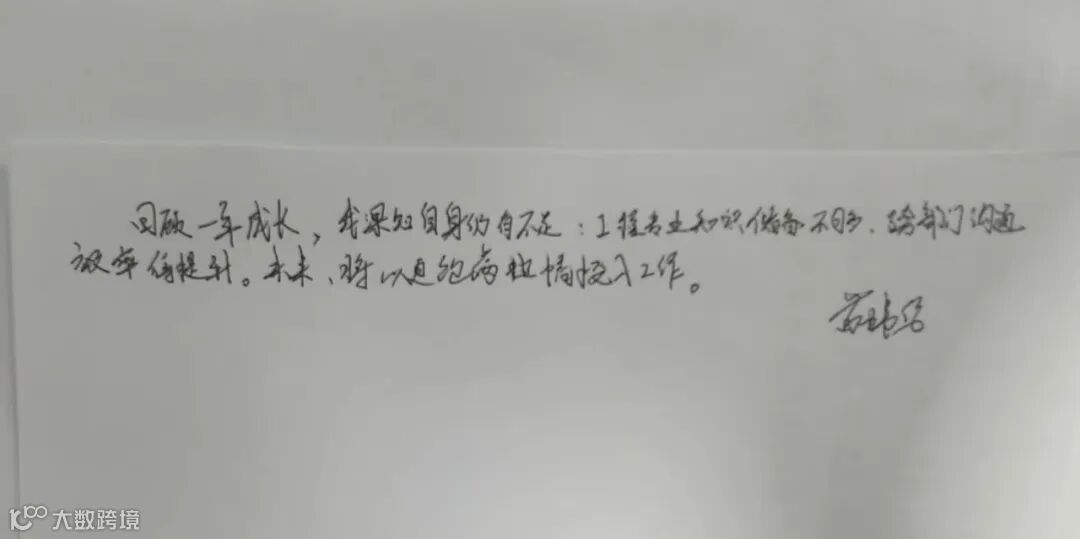 回顾一年成长，我深知自身仍有不足：工程专业知识储备不足、跨部门沟通
效率待提升。未来、将以更饱满热情投入工作。
大数跨境